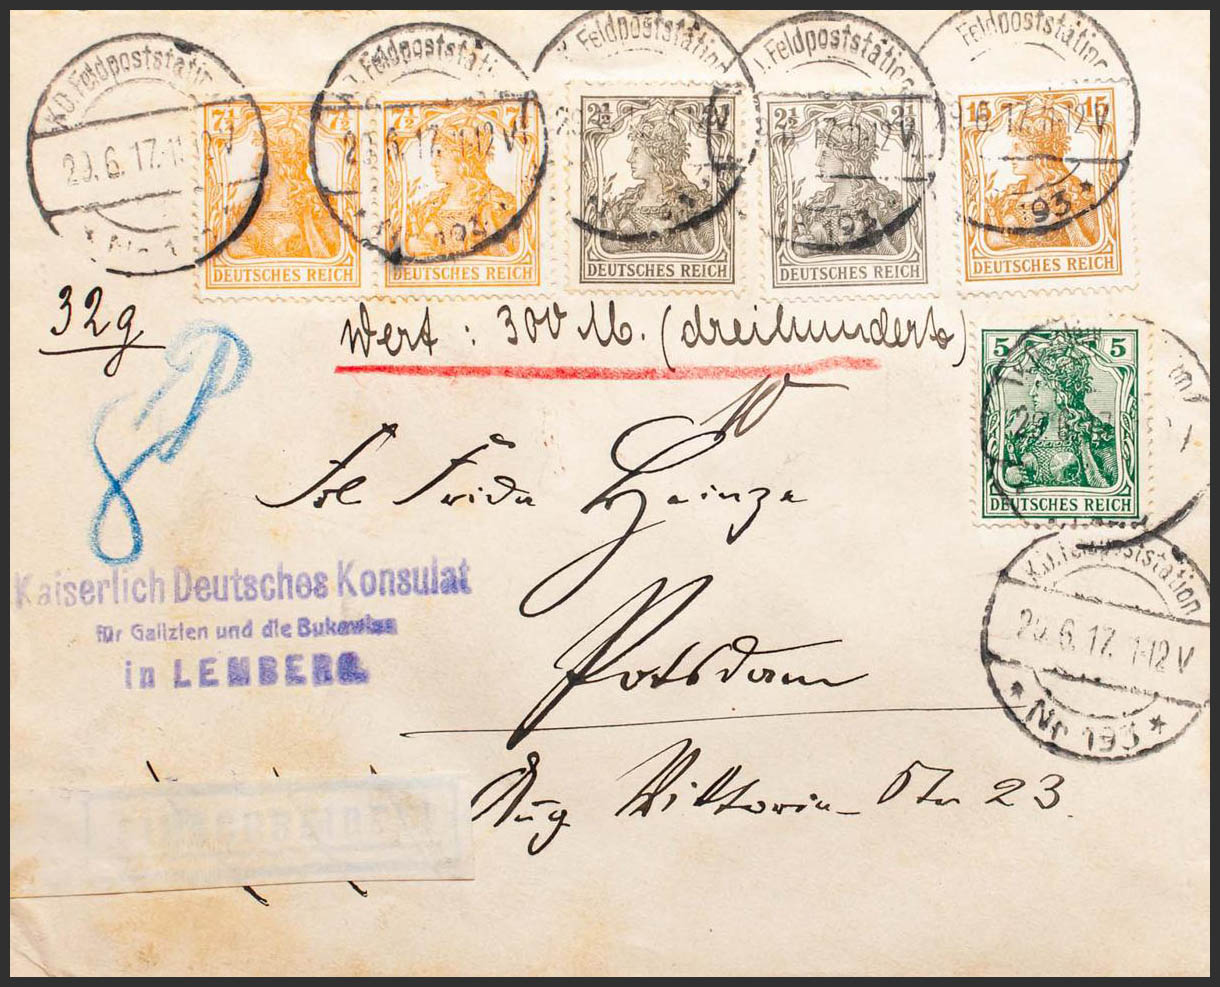 K.D. Feldpoststation
29.6.17.11
7½ 7½
DEUTSCHES REICH
K.D. Feldpoststation
29.6.17. 11-12 V
193
7½
DEUTSCHES REICH
Feldpoststation
2½
DEUTSCHES REICH
Feldpoststation
12 V
193
2½ 2½
DEUTSCHES REICH
Feldpoststation
9.6.17. 11-12 V
193
15 15
DEUTSCHES REICH
32g
Wert: 300 M. (dreihundert)
5 5
DEUTSCHES REICH
Frl Frida Heinze
Kaiserlich Deutsches Konsulat
für Galizien und die Bukowina
in LEMBERG.
K.D. Feldpoststation
29.6.17. 11-12 V
* Nr 193 *
Potsdam
Aug Viktoria Str 23